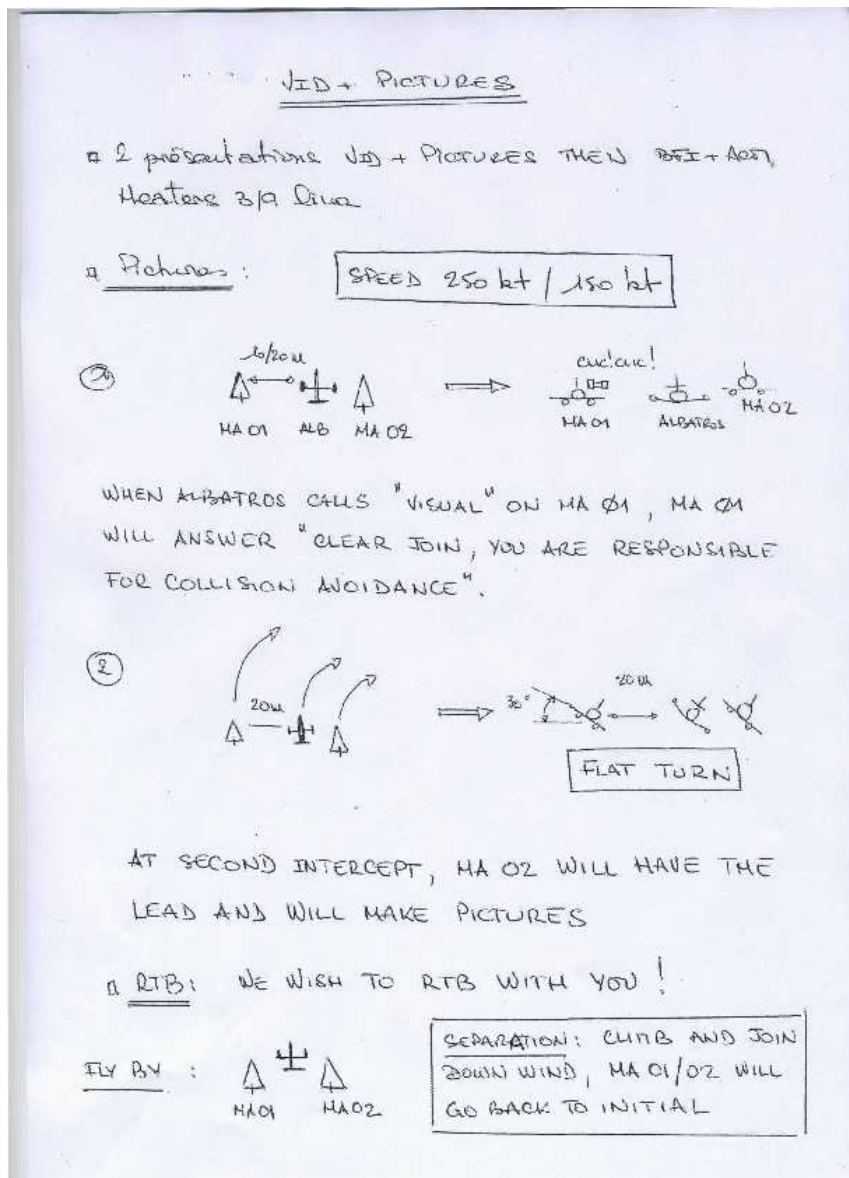 VID + PICTURES
2 présentations VID + PICTURES THEN BFI +
Heaters 3/9 line
Pictures :
SPEED 250 kt / 150 kt
①
10/20 m
MA 01 ALB MA 02
clic! clic!
MA 01 ALBATROS MA 02
WHEN ALBATROS CALLS "VISUAL" ON MA Ø1, MA Ø1
WILL ANSWER "CLEAR JOIN, YOU ARE RESPONSIBLE
FOR COLLISION AVOIDANCE".
②
20m
30° 20m
FLAT TURN
AT SECOND INTERCEPT, MA 02 WILL HAVE THE
LEAD AND WILL MAKE PICTURES
RTB: WE WISH TO RTB WITH YOU!
FLY BY :
MA01 MA02
SEPARATION: CLIMB AND JOIN
DOWN WIND, MA 01/02 WILL
GO BACK TO INITIAL